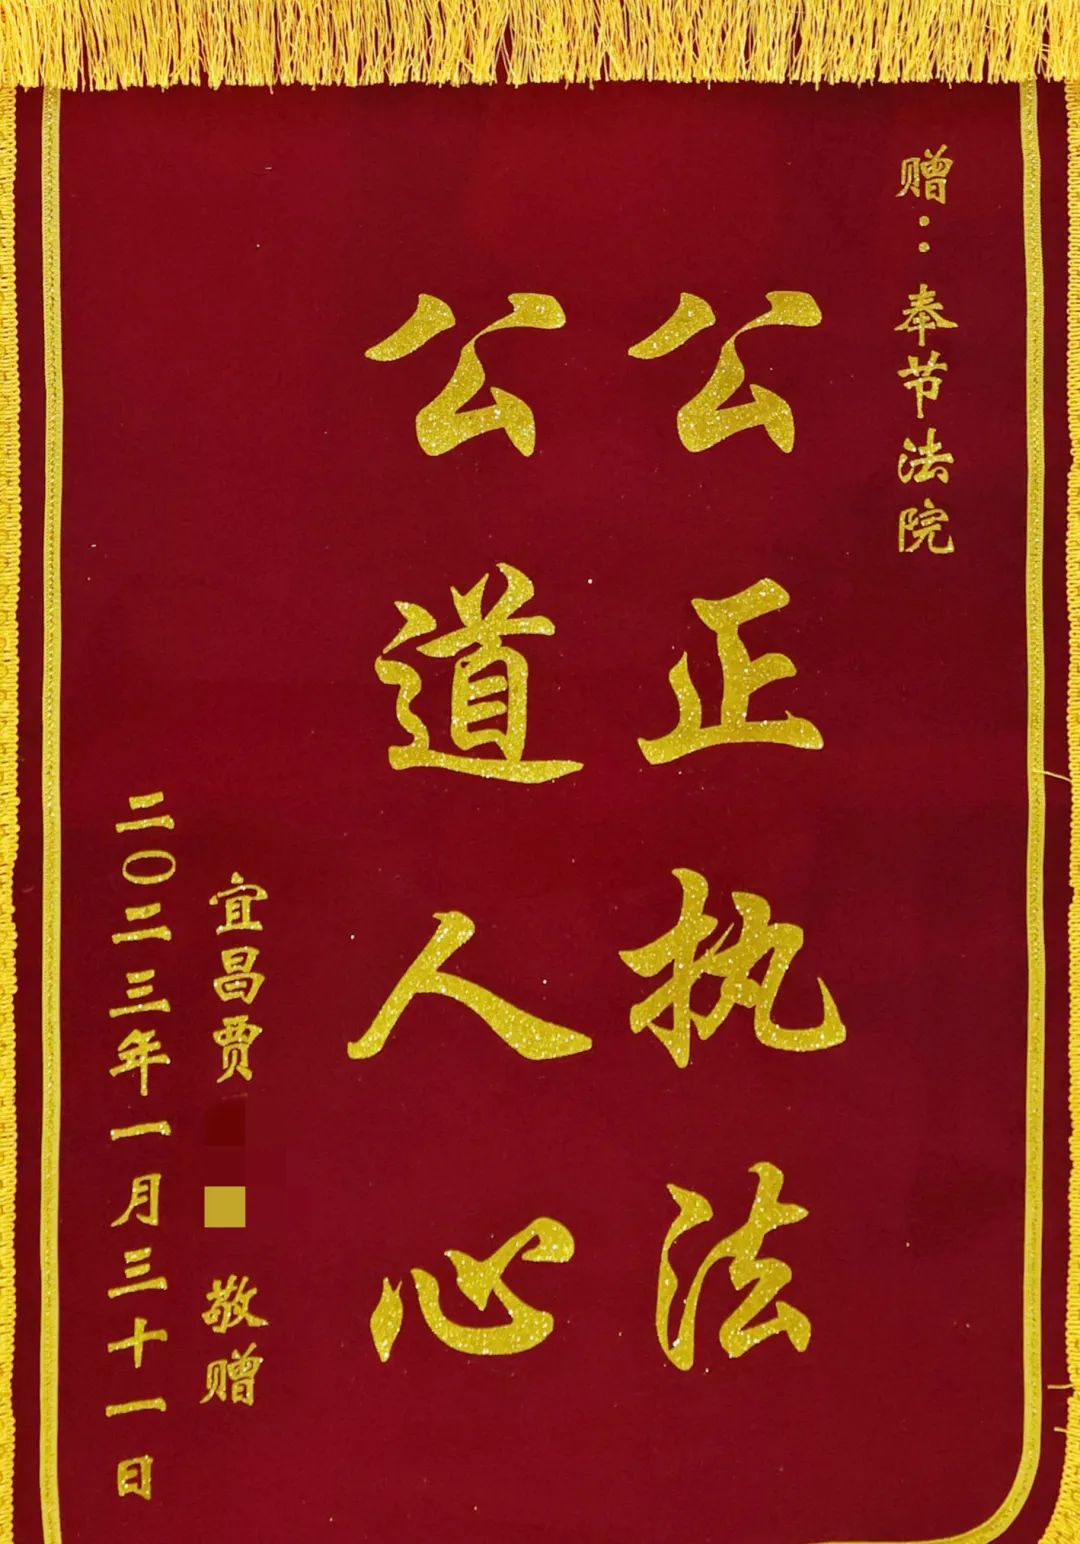 赠：奉节法院
公正执法
公道人心
宜昌贾 敬赠
二〇二三年一月三十一日